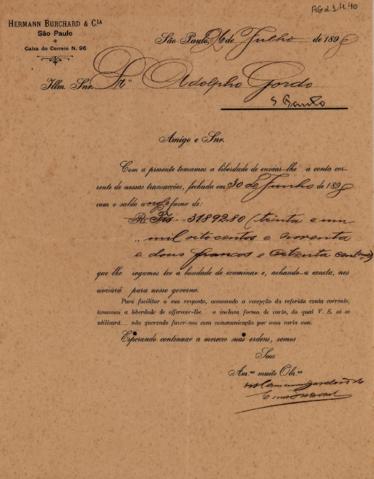 AG21.1.40
HERMANN BURCHARD & CIA
São Paulo
Caixa do Correio N. 96
São Paulo, de Julho de 189
Illm. Snr. Dr. Adolpho Gordo
S. Paulo
Amigo e Snr.
Com a presente tomamos a liberdade de enviar-lhe a conta cor-
rente de nossas transacções, fechada em 30 de Junho de 189
com o saldo a favor de
Frs 31892.80 (trinta e um
mil oitocentos e noventa
e dous francos e oitenta cent)
que lhe rogamos ter a bondade de examinar e, achando-a exacta, nos
avisará para nosso governo.
Para facilitar a sua resposta, accusando a recepção da referida conta corrente,
tomamos a liberdade de offerecer-lhe a inclusa forma de carta, da qual V. S. só se
utilisará não querendo fazer-nos communicação por uma carta sua.
Esperando continuar a merecer suas ordens, somos
Seus
Am.os muito Obr.os